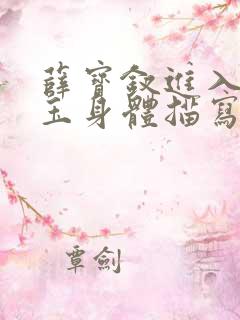 薛寶釵進入
玉身體描寫
覃劍